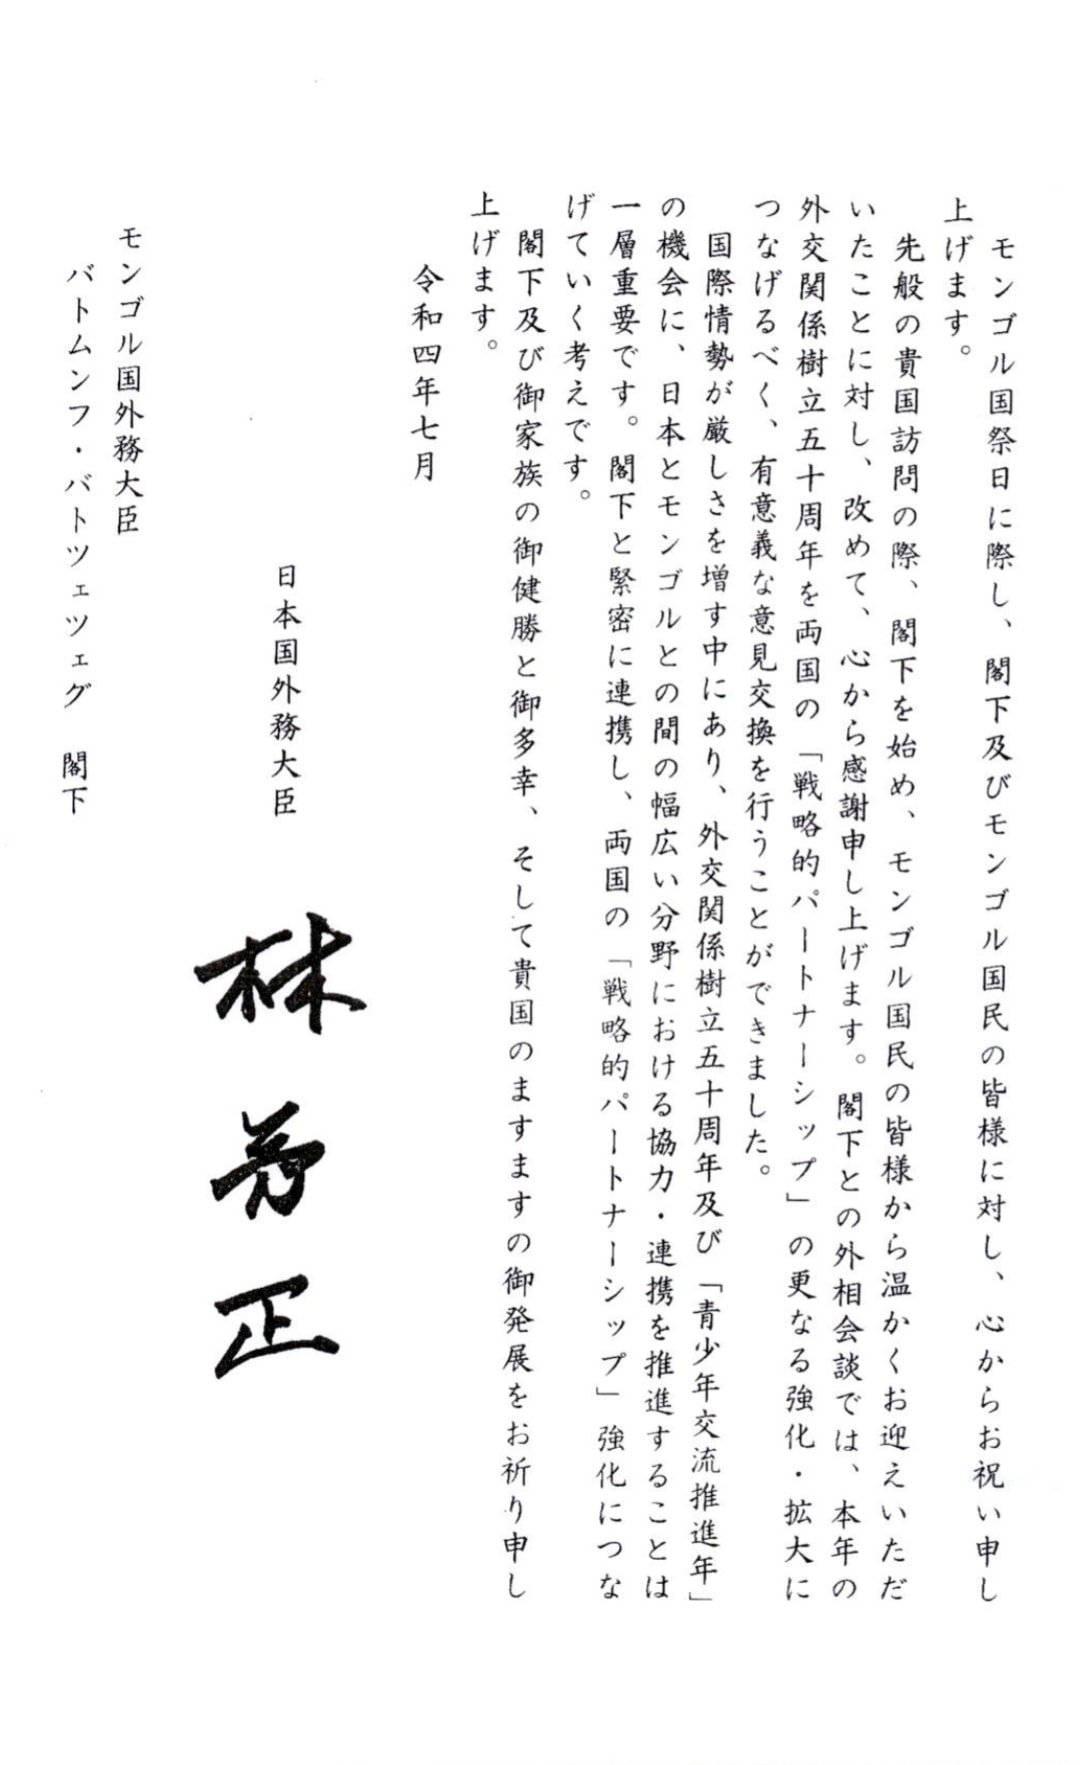 モンゴル国祭日に際し、閣下及びモンゴル国民の皆様に対し、心からお祝い申し
上げます。
先般の貴国訪問の際、閣下を始め、モンゴル国民の皆様から温かくお迎えいただ
いたことに対し、改めて、心から感謝申し上げます。閣下との外相会談では、本年の
外交関係樹立五十周年を両国の「戦略的パートナーシップ」の更なる強化・拡大に
つなげるべく、有意義な意見交換を行うことができました。
国際情勢が厳しさを増す中にあり、外交関係樹立五十周年及び「青少年交流推進年」
の機会に、日本とモンゴルとの間の幅広い分野における協力・連携を推進することは
一層重要です。閣下と緊密に連携し、両国の「戦略的パートナーシップ」強化につな
げていく考えです。
閣下及び御家族の御健勝と御多幸、そして貴国のますますの御発展をお祈り申し
上げます。
令和四年七月
日本国外務大臣 林芳正
モンゴル国外務大臣
バトムンフ・バトツェツェグ 閣下